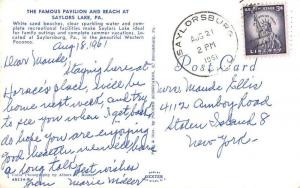 THE FAMOUS PAVILION AND BEACH AT
SAYLORS LAKE, PA.
White sand beaches, clear sparkling water and com-
plete recreational facilities make Saylors Lake ideal
for family outings and complete summer vacations. Lo-
cated at Saylorsburg, Pa., in the beautiful Western
Poconos.
Aug 18, 1961
Dear Maude:
Staying here at
Horace's place, Since, be
home next week, and try
to see you when I get back,
do hope you are enjoying
good health, we will have
a long talk.
Best wishes
from Marie
SAYLORSBURG
AUG 21
2 PM
1961
PA.
3¢
LIBERTY
Post Card
Mrs Maude Ellis
4112 Amboy Road
Staten Island 8
New York.
DEXTER